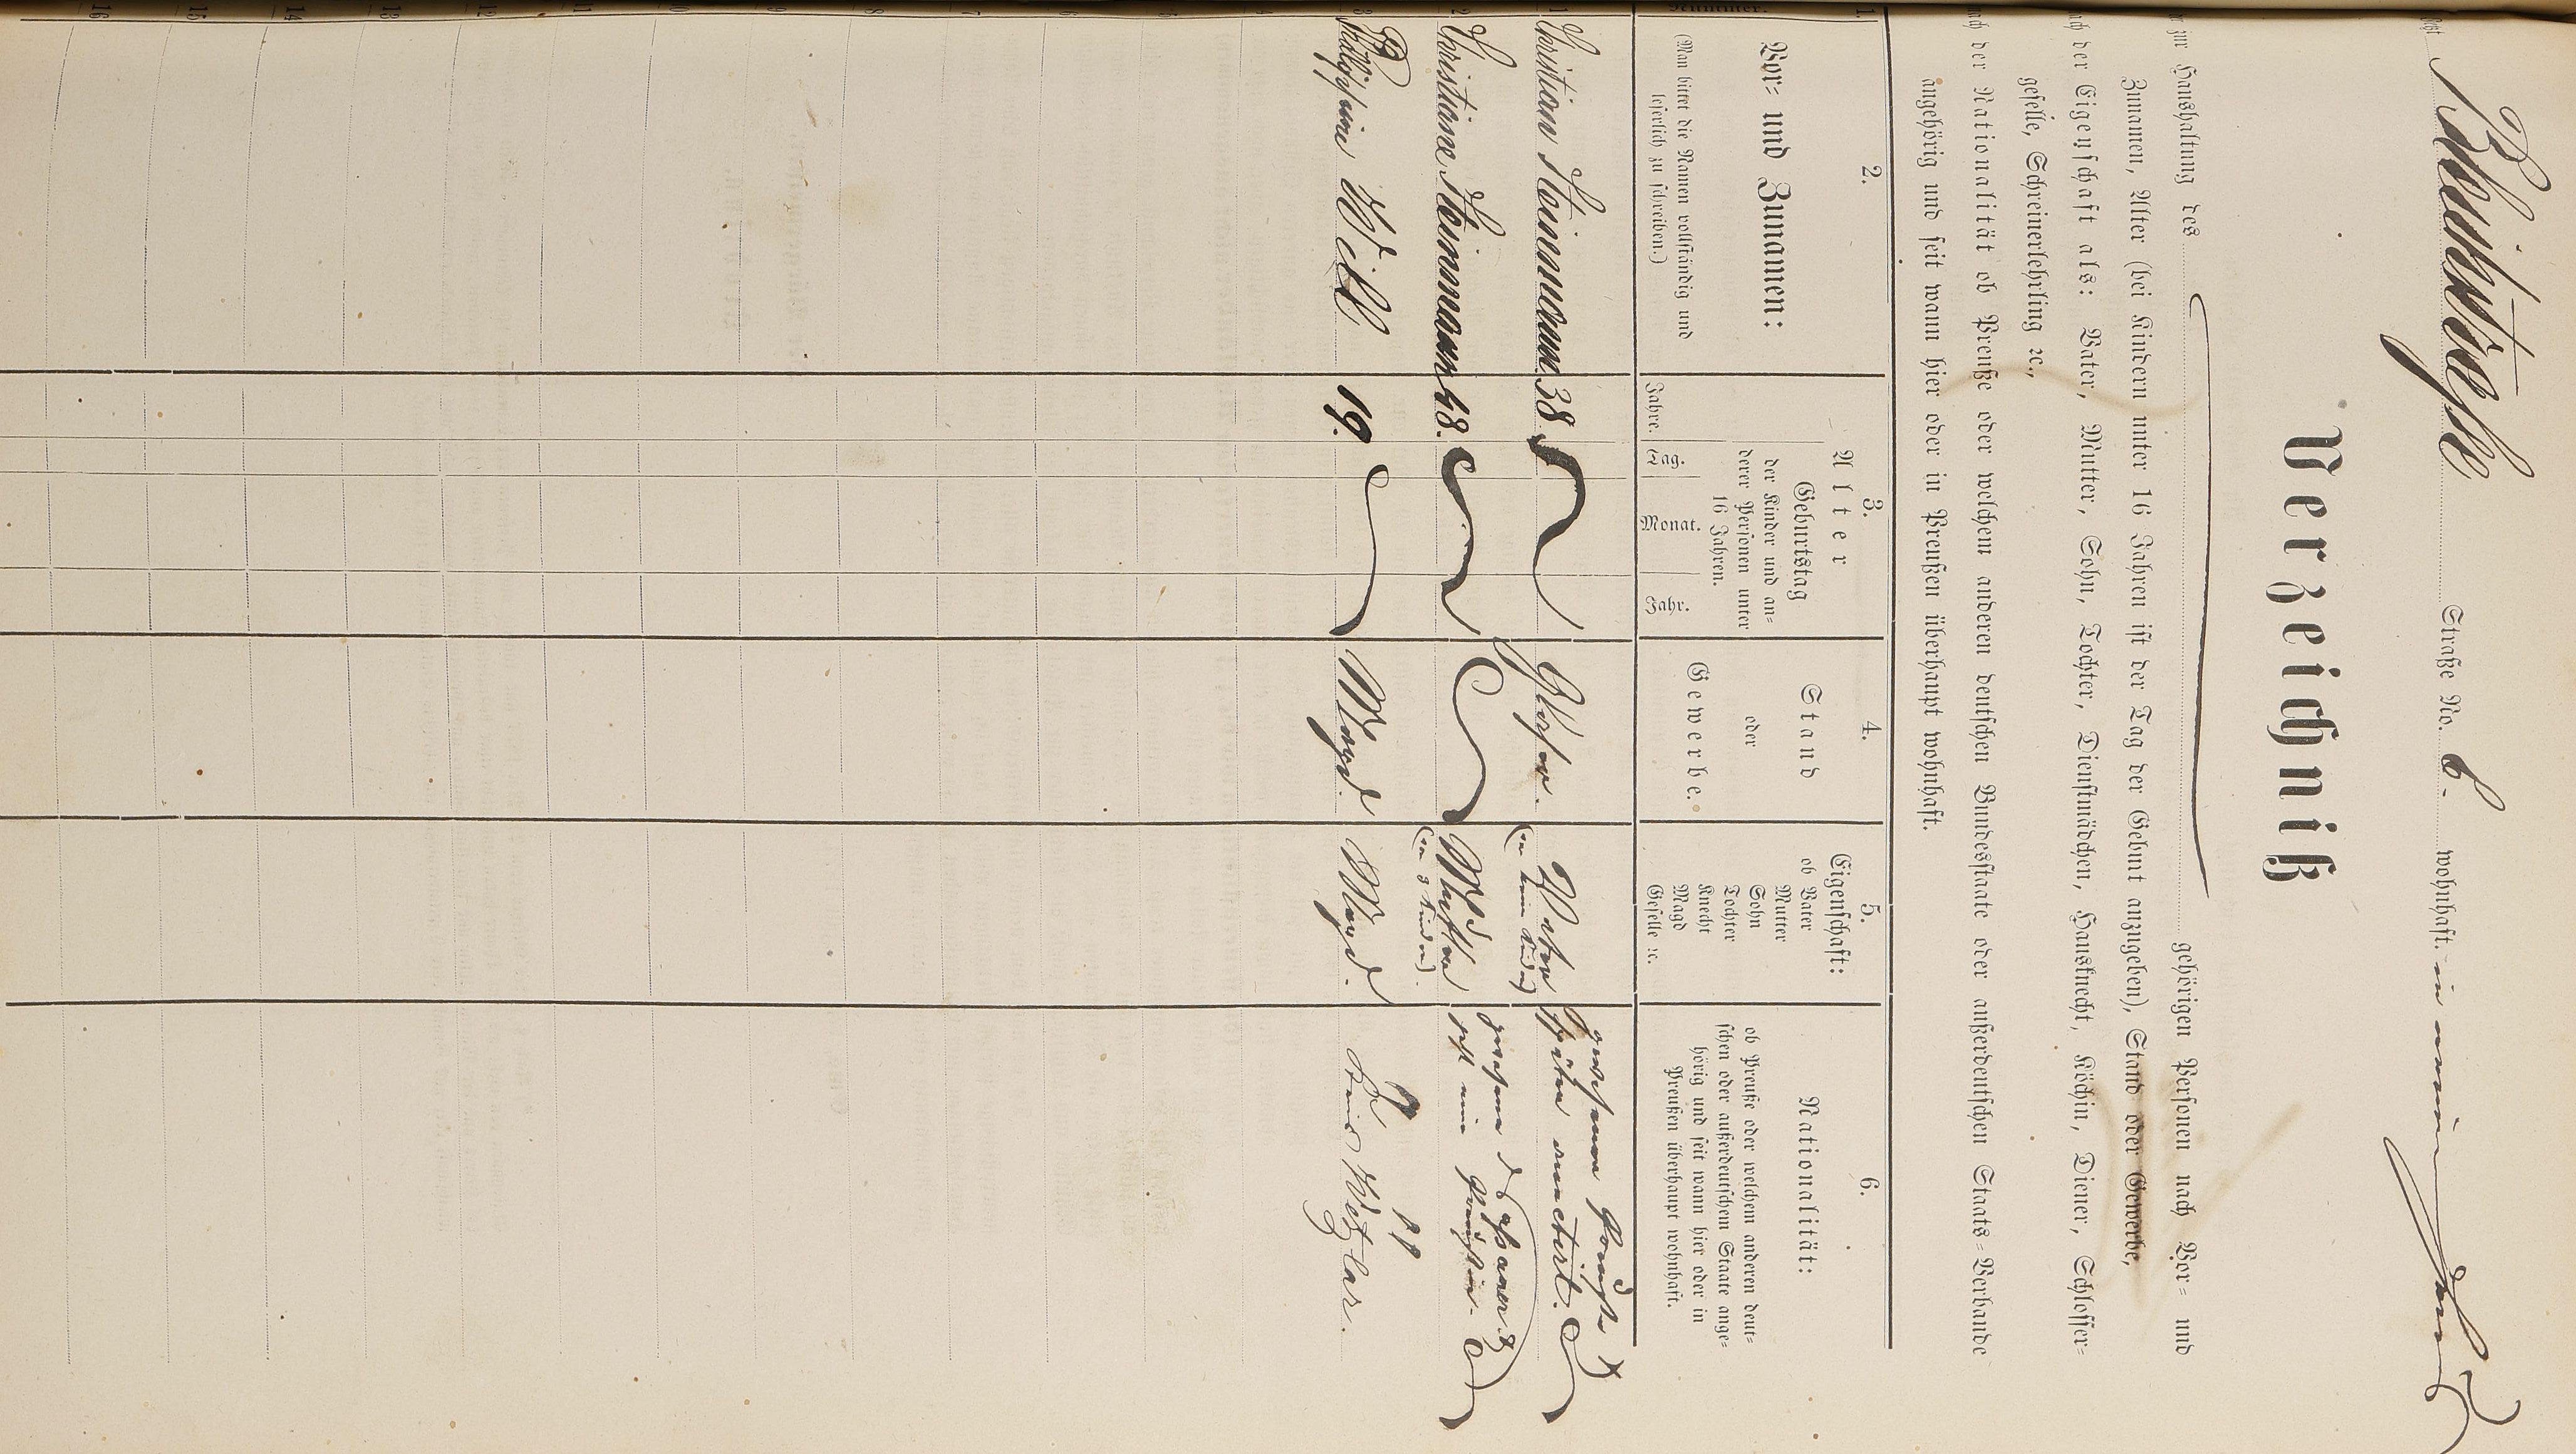 Bahnstraße Straße No. 6. wohnhaft. in
Verzeichniß
der zur Haushaltung des gehörigen Personen nach Vor- und
Zunamen, Alter (bei Kindern unter 16 Jahren ist der Tag der Geburt anzugeben), Stand oder Gewerbe,
nach der Eigenschaft als: Vater, Mutter, Sohn, Tochter, Dienstmädchen, Hausknecht, Köchin, Diener, Schlosser-
geselle, Schreinerlehrling ꝛc.,
nach der Nationalität ob Preuße oder welchem anderen deutschen Bundesstaate oder außerdeutschen Staats-Verbande
angehörig und seit wann hier oder in Preußen überhaupt wohnhaft.
1. 2. 3. 4. 5. 6.
Nummer.
Vor- und Zunamen:
(Man bittet die Namen vollständig und
leserlich zu schreiben.)
Alter
Jahre.
Geburtstag
der Kinder und an-
derer Personen unter
16 Jahren.
Tag. Monat. Jahr.
Stand
oder
Gewerbe.
Eigenschaft:
ob Vater
Mutter
Sohn
Tochter
Knecht
Magd
Geselle ꝛc.
Nationalität:
ob Preuße oder welchem anderen deut-
schen oder außerdeutschem Staate ange-
hörig und seit wann hier oder in
Preußen überhaupt wohnhaft.
1 Christian Steinmann 38 Vater
2 Christiane Steinmann 48. Mutter
3 Will 19. Magd. Magd. Kreis Wetzlar.
4
5
6
7
8
9
10
11
12
13
14
15
16